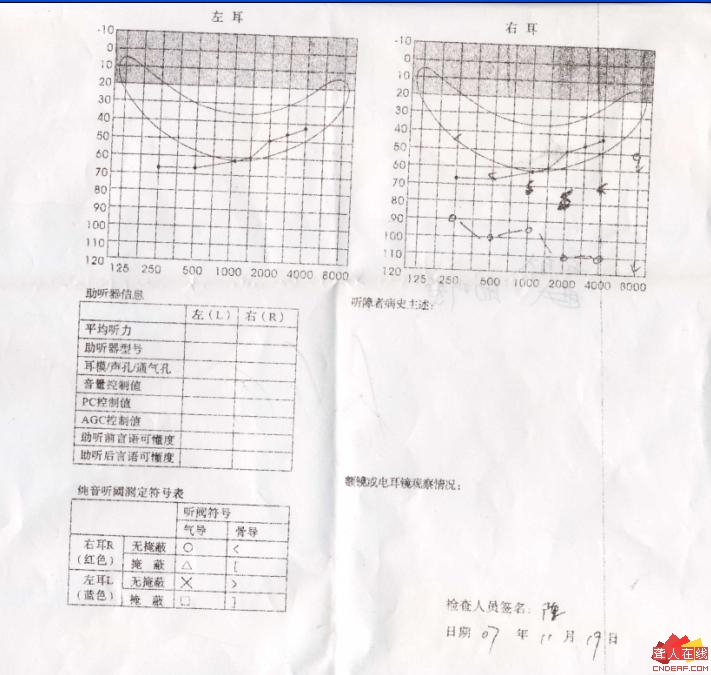 左耳
右耳
-10
0
10
20
30
40
50
60
70
80
90
100
110
120
125 250 500 1000 2000 4000 8000
-10
0
10
20
30
40
50
60
70
80
90
100
110
120
125 250 500 1000 2000 4000 8000
助听器信息
左(L) 右(R)
平均听力
助听器型号
耳模/声孔/通气孔
音量控制值
PC控制值
AGC控制值
助听前言语可懂度
助听后言语可懂度
听障者病史主述:
额镜或电耳镜观察情况:
纯音听阈测定符号表
听阈符号
气导 骨导
右耳R (红色) 无掩蔽 ○ <
掩蔽 △ [
左耳L (蓝色) 无掩蔽 × >
掩蔽 □ ]
检查人员签名:
日期 07 年 11 月 19 日
聋人在线
CNDEAF.COM